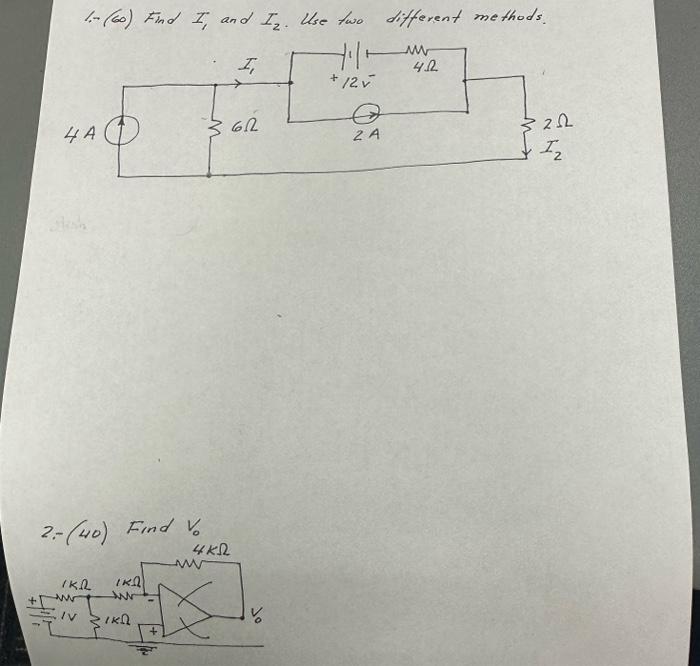 1.- (60) Find I₁ and I₂. Use two different methods.
I₁
+ 12v -
4Ω
4A
6Ω
2A
2Ω
I₂
2.- (40) Find Vo
4KΩ
1KΩ
1KΩ
+
-
1V
1KΩ
-
+
Vo